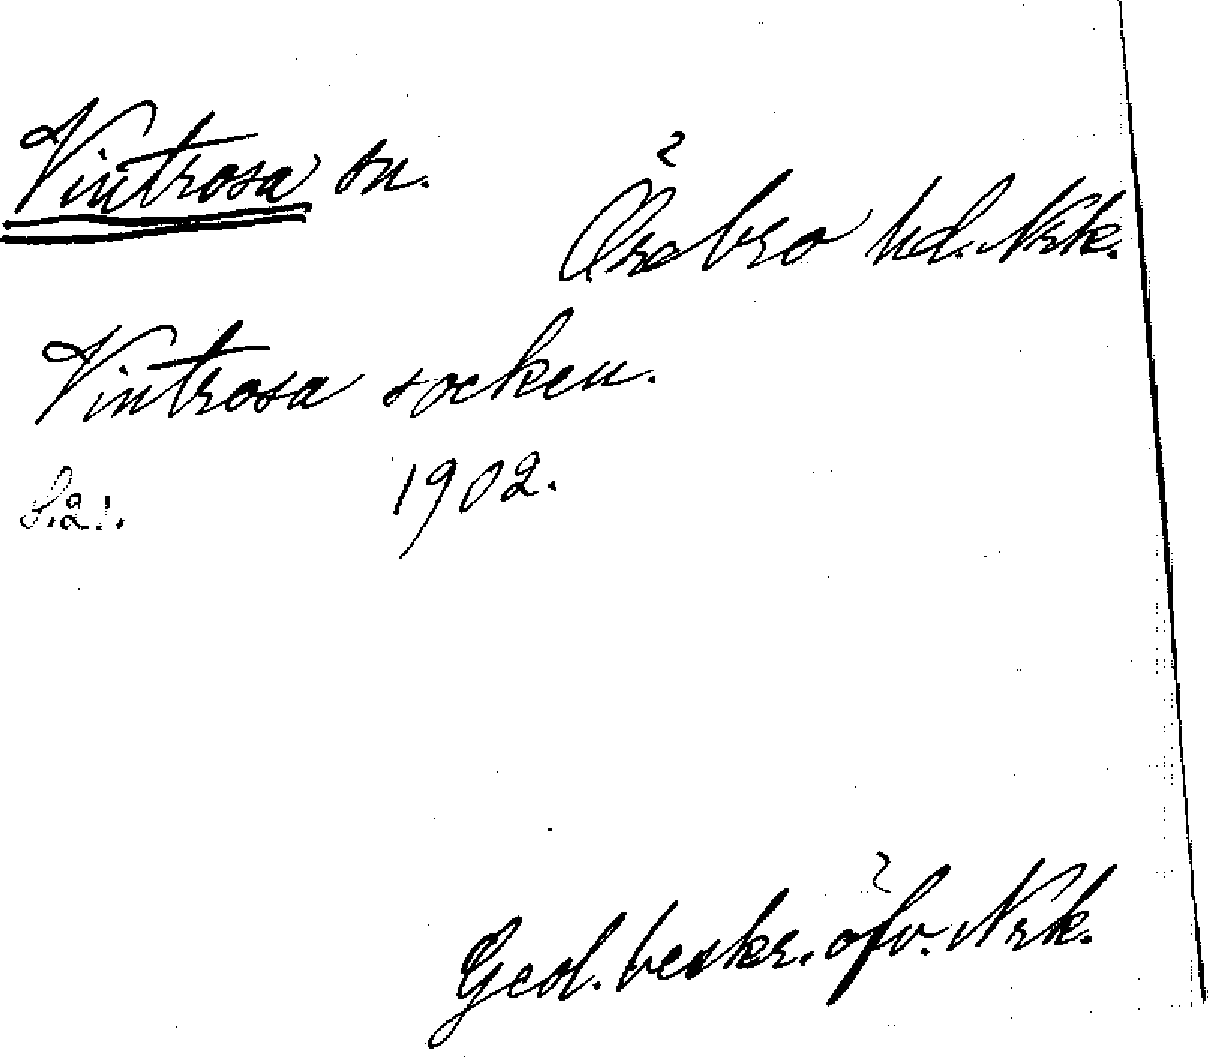 Vintrosa sn.
Örebro hd. Nrk.
Vintrosa socken.
S. 21. 1902.
Geol. beskr. öfv. Nrk.